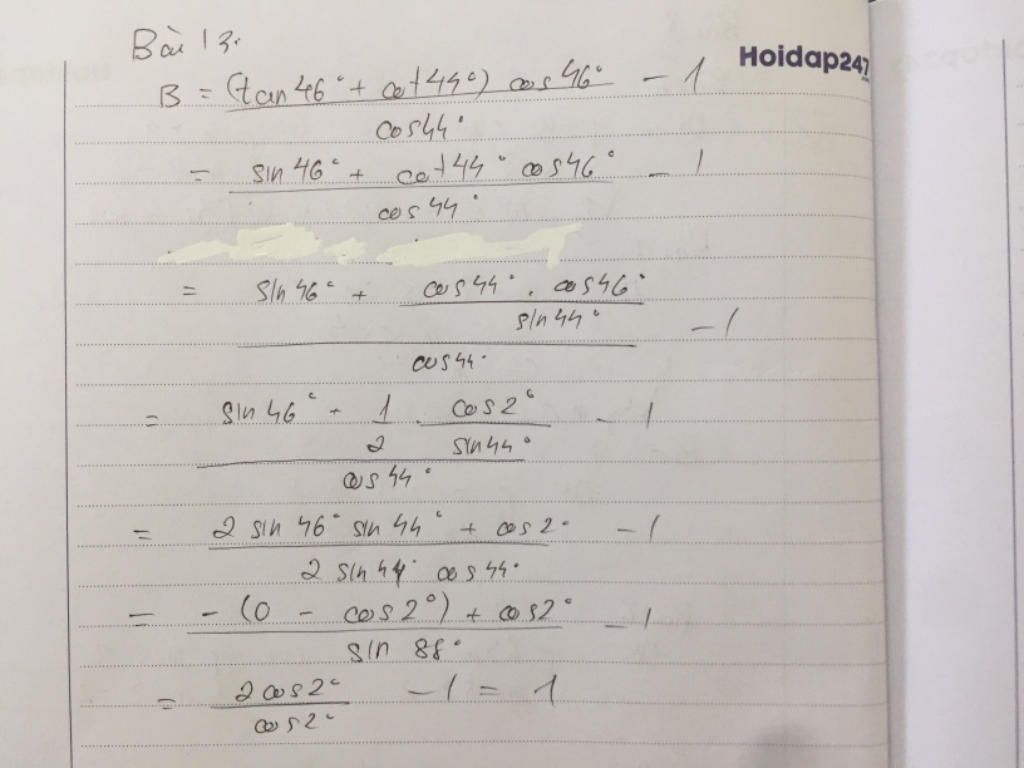 Bài 13.
Hoidap247
B = (tan46° + cot44°) cos46° − 1
cos44°
= sin46° + cot44° cos46° − 1
cos44°
= sin46° + cos44° . cos46°
sin44° − 1
cos44°
= sin46° + 1 . cos2° − 1
2 sin44°
cos44°
= 2 sin46° sin44° + cos2° − 1
2 sin44° cos44°
= − (0 − cos2°) + cos2° − 1
sin 88°
= 2cos2° − 1 = 1
cos2°